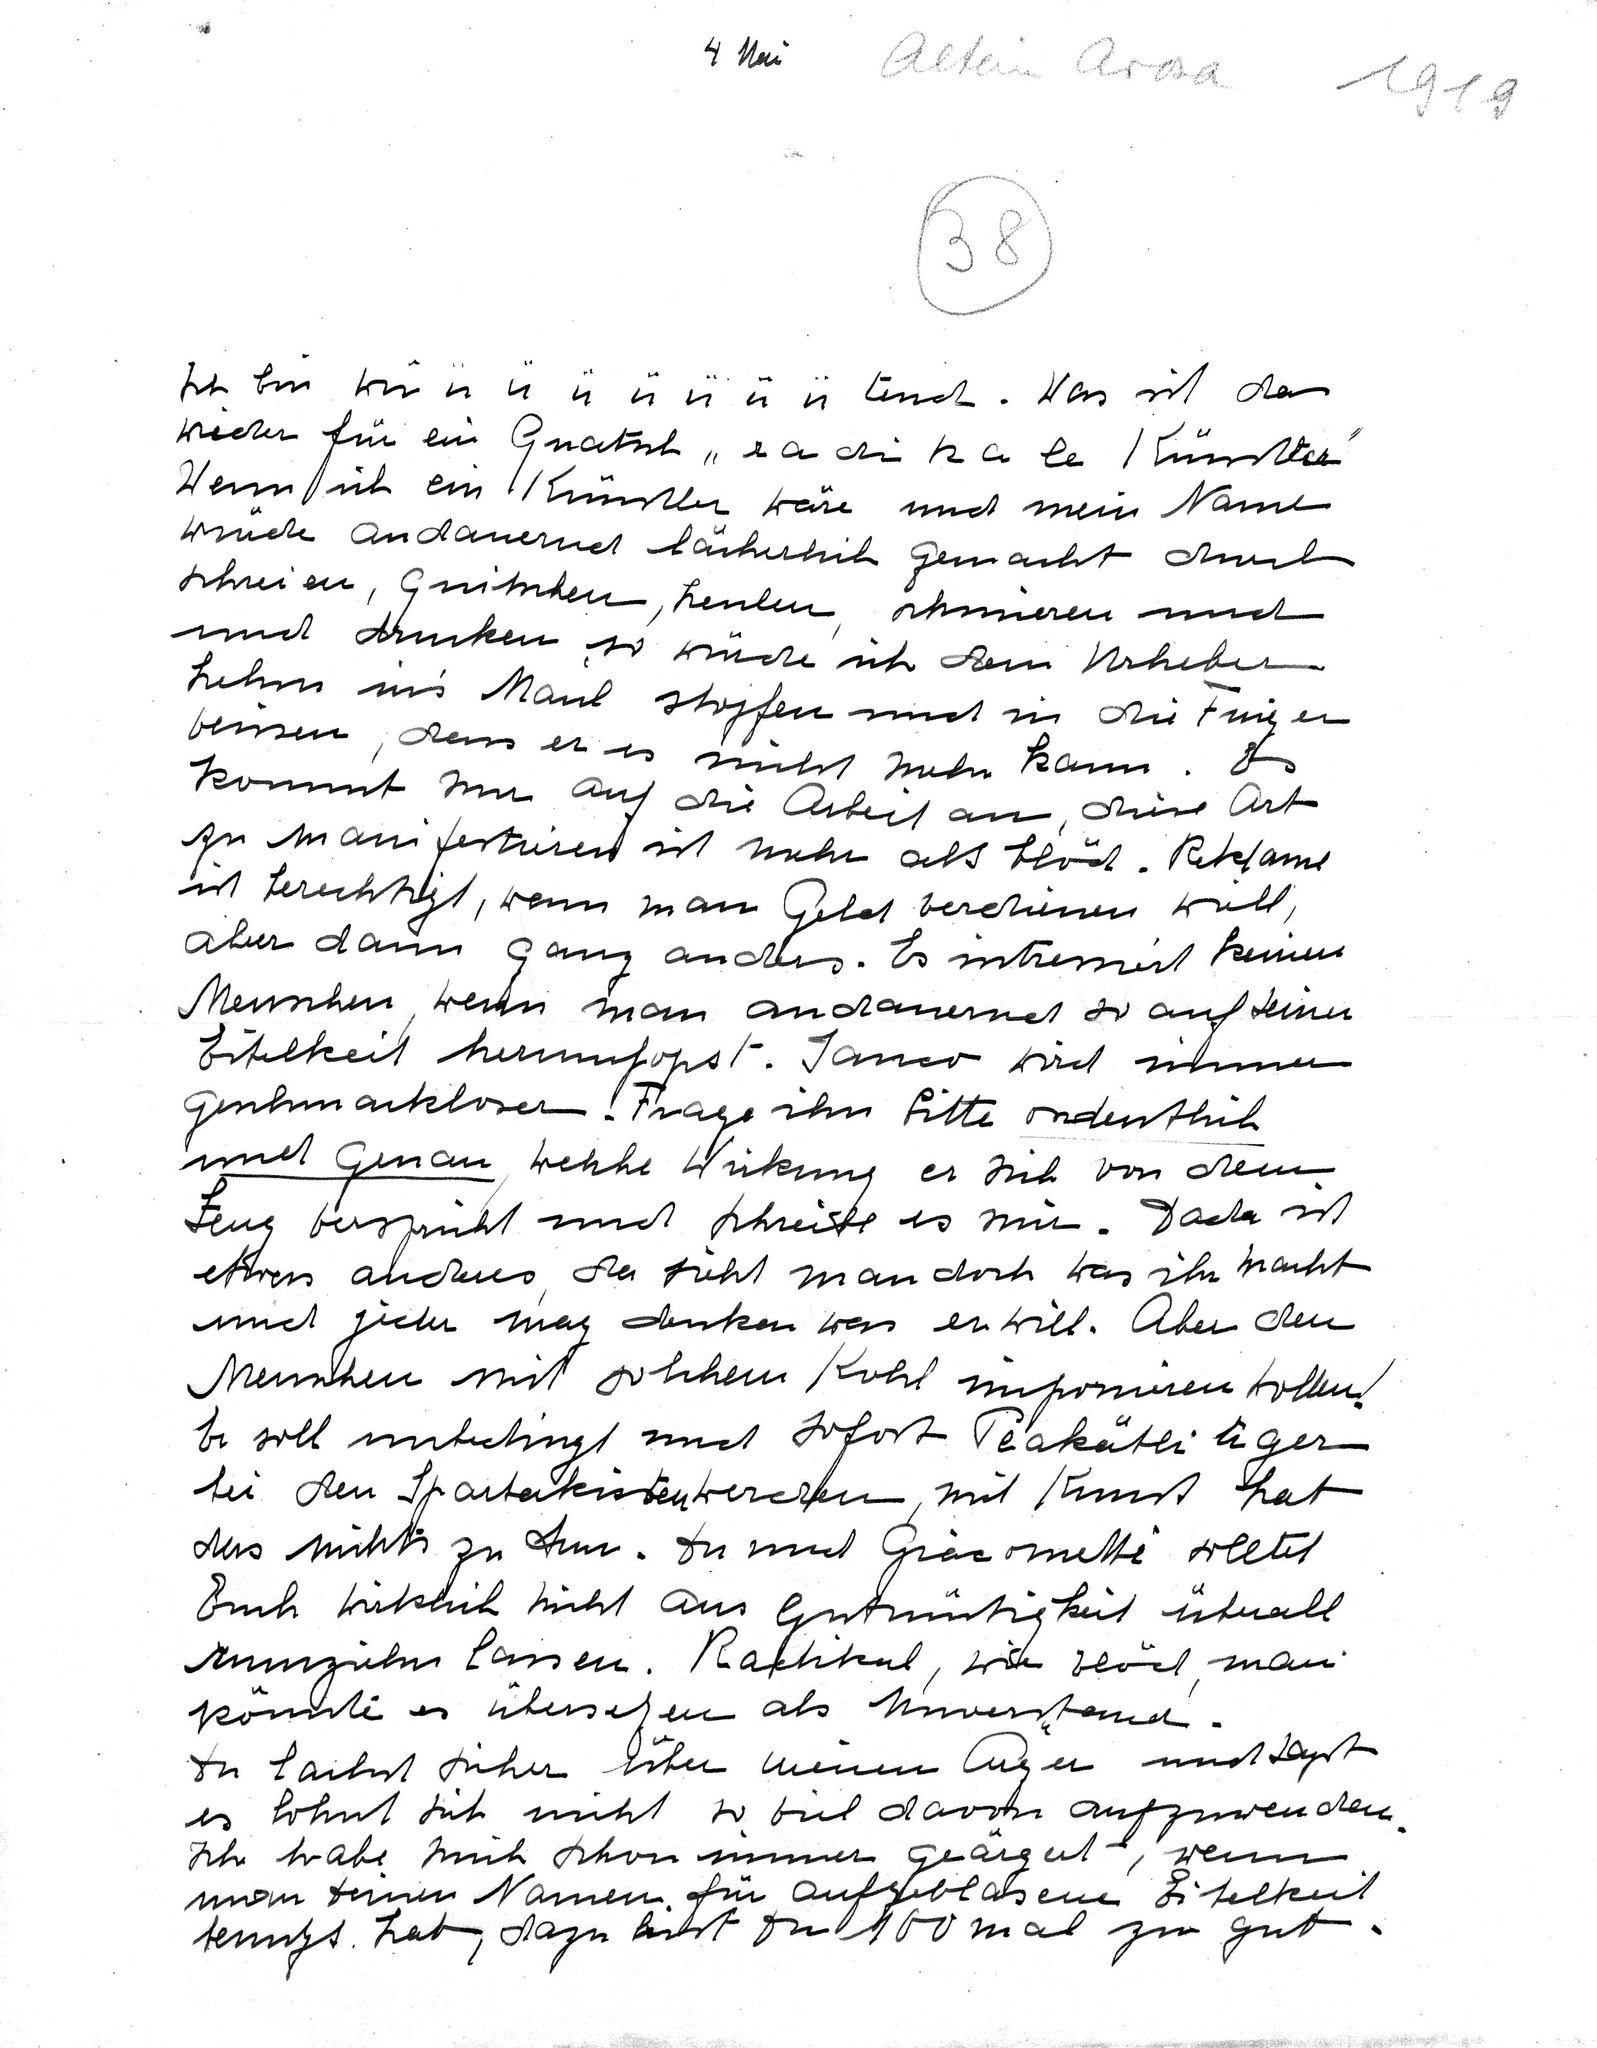 4 Mai Altein Arosa 1919
38
Ich bin wü ü ü ü ü ü ü ü tend. Was ist da
wieder für ein Quatsch „radikale Künstler"
Wenn ich ein Künstler wäre und mein Name
würde andauernd lächerlich gemacht durch
schreien, quitschen, heulen, schmieren und
und drucken, so würde ich dem Urheber
Lehm in's Maul stopfen und in die Finger
beissen, dass er es nicht mehr kann. Es
kommt nur auf die Arbeit an, diese Art
zu manifestieren ist mehr als blöd. Reklame
ist berechtigt, wenn man Geld verdienen will,
aber dann ganz anders. Es intressiert keinen
Menschen, wenn man andauernd so auf seiner
Eitelkeit herumhopst. Janco wird immer
geschmackloser. Frage ihn bitte ordentlich
und genau, welche Wirkung er sich von dem
Zeug verspricht und schreibe es mir. Dada ist
etwas anderes, da sieht man doch was ihr macht
und jeder mag denken was er will. Aber den
Menschen mit solchem Kohl imponieren wollen!
Er soll unbedingt und sofort Plakätli träger
bei den Spartakisten werden, mit Kunst hat
das nichts zu tun. Du und Giacometti solltet
Euch wirklich nicht aus Gutmütigkeit überall
reinziehn lassen. Radikal, wie blöd, man
könnte es übersetzen als Unverstand.
Du lachst sicher über meinen Ärger und sagst
es lohnt sich nicht so viel davon aufzuwenden.
Ich habe mich schon immer geärgert, wenn
man deinen Namen für aufgeblasene Eitelkeit
benutzt hat, dazu bist Du 100 mal zu gut.